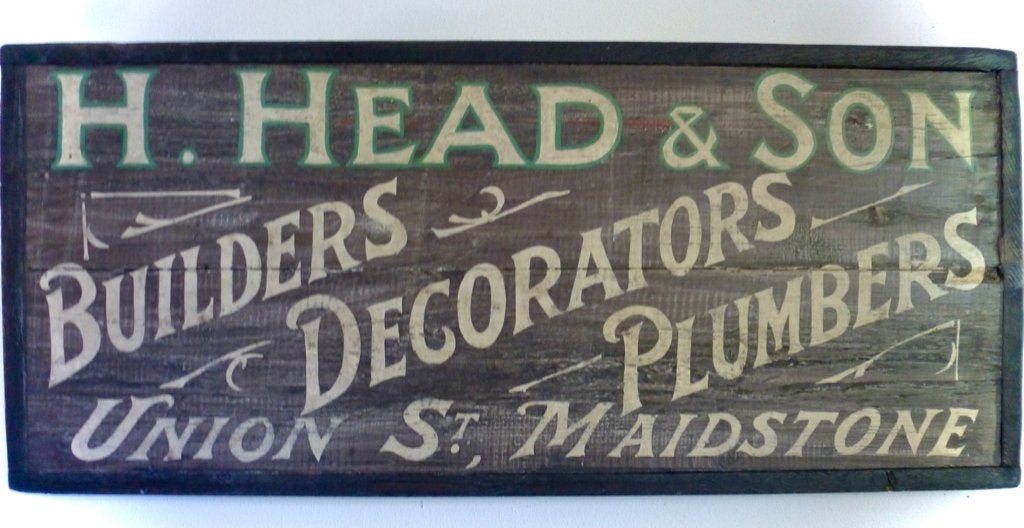 H. HEAD & SON
BUILDERS
DECORATORS
PLUMBERS
UNION ST., MAIDSTONE